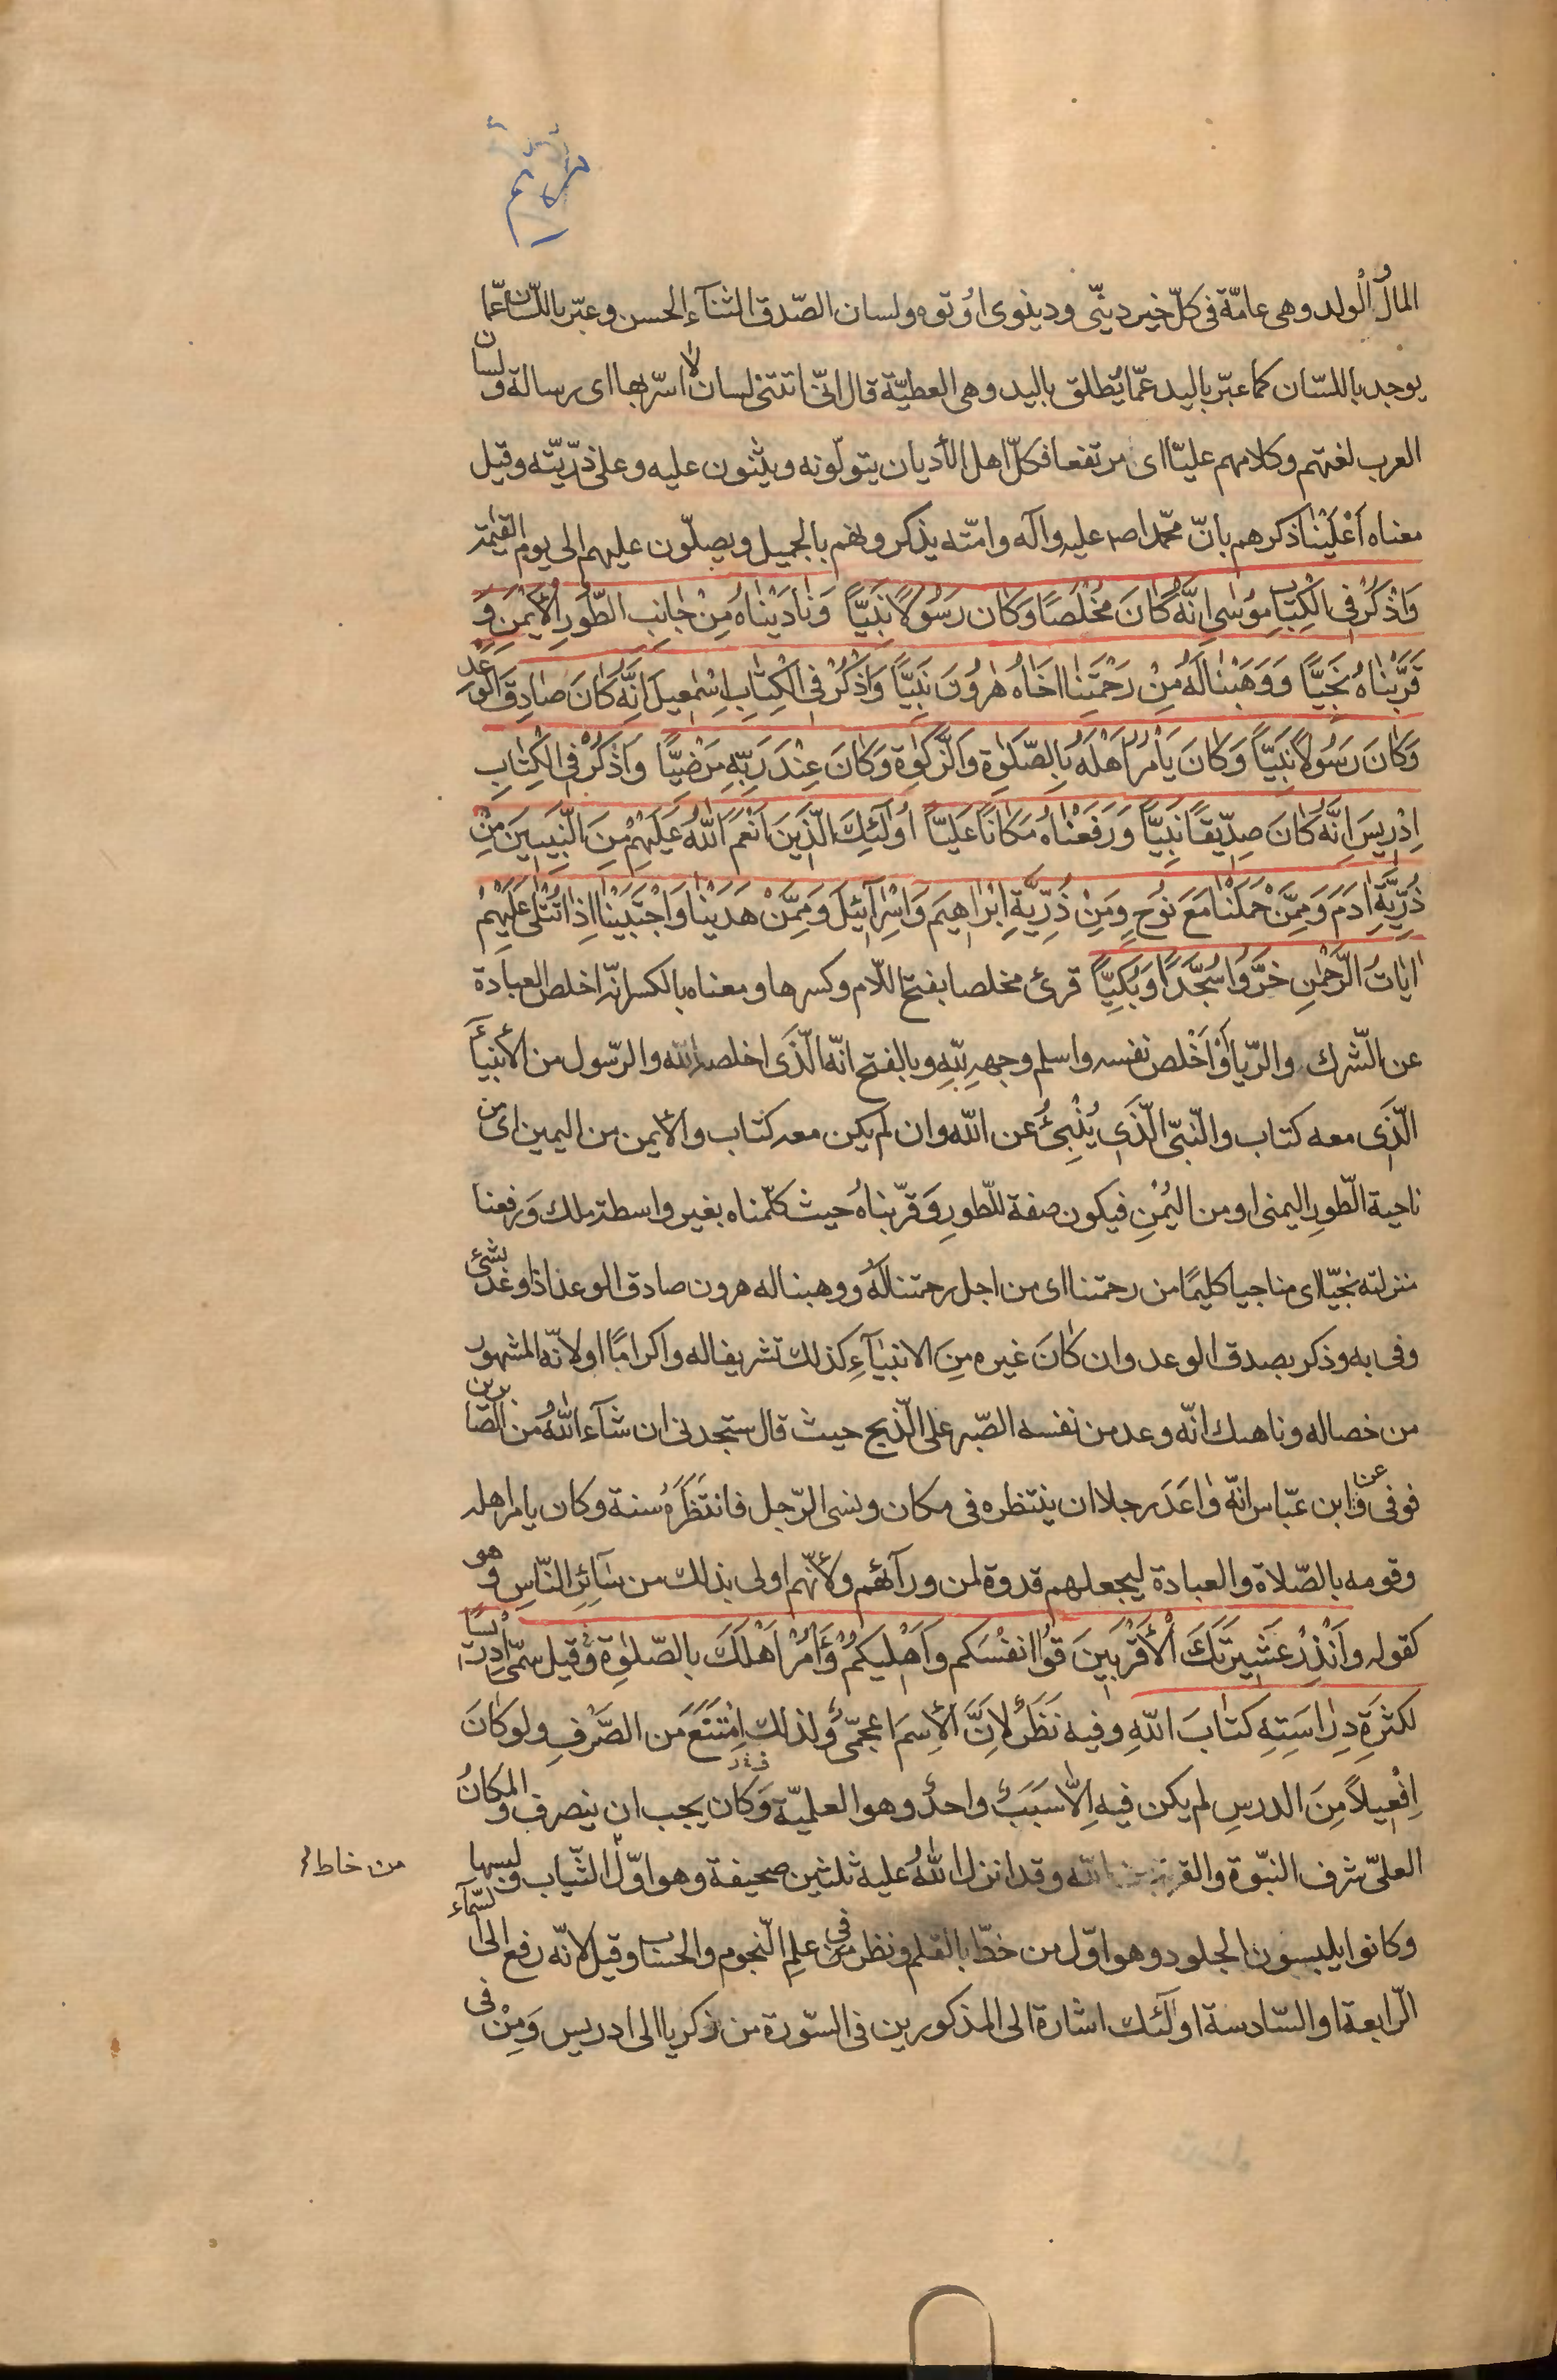 مريم
المالُ و الولد وهى عامّة فى كلّ خير دينّى ودينوى اوُتوه ولسان الصّدق الثنآء الحسن وعبّر باللّسان عمّا
يوجد باللسّان كما عبّر باليد عمّا يُطلق باليد وهى العطيّة قال انّى اتتنى لسان لا اسّر بها اى رسالة ولسان
العرب لغتهم وكلامهم عليّا اى مرتفعا فكلّ اهل الأديان يتولّونه ويثنون عليه وعلى ذرّيّته وقيل
معناه اَعْلَيْنا ذكرهم بانّ محمّدا صد عليه وآله وامّته يذكرونهم بالجميل ويصلّون عليهم الى يوم القيٰمة
وَاذْكُرْ فِى الْكِتٰابِ مُوسٰى اِنَّهُ كٰانَ مُخْلَصًا وَكٰانَ رَسُولًا نَبِيًّا وَنٰادَيْنٰاهُ مِنْ جٰانِبِ الطُّورِ الْأَيْمَنِ وَ
قَرَّبْنٰاهُ نَجِيًّا وَوَهَبْنٰا لَهُ مِنْ رَحْمَتِنٰا اَخٰاهُ هٰرُونَ نَبِيًّا وَاذْكُرْ فِى الْكِتٰابِ اِسْمٰعِيلَ اِنَّهُ كٰانَ صٰادِقَ الْوَعْدِ
وَكٰانَ رَسُولًا نَبِيًّا وَكٰانَ يَأْمُرُ اَهْلَهُ بِالصَّلٰوةِ وَالزَّكٰوةِ وَكٰانَ عِنْدَ رَبِّهِ مَرْضِيًّا وَاذْكُرْ فِى الْكِتٰابِ
اِدْرِيسَ اِنَّهُ كٰانَ صِدِّيقًا نَبِيًّا وَرَفَعْنٰاهُ مَكٰانًا عَلِيًّا اُولٰئِكَ الَّذِينَ اَنْعَمَ اللّٰهُ عَلَيْهِمْ مِنَ النَّبِيِّينَ مِنْ
ذُرِّيَّةِ اٰدَمَ وَمِمَّنْ حَمَلْنٰا مَعَ نُوحٍ وَمِنْ ذُرِّيَّةِ اِبْرٰاهِيمَ وَاِسْرٰآئِيلَ وَمِمَّنْ هَدَيْنٰا وَاجْتَبَيْنٰا اِذٰا تُتْلٰى عَلَيْهِمْ
اٰيٰاتُ الرَّحْمٰنِ خَرُّوا سُجَّدًا وَبُكِيًّا قرئ مخلصا بفتح اللّام وكسرها ومعناه بالكسر انّه اخلص العبادة
عن الشّرك والرّيا اَوْ اَخْلص نفسه واسلم وجهه لِلّٰهِ وبالفتح انّه الّذى اخلصه اللّه والرّسول من الأنبيآء
الّذى معه كتاب والنّبىّ الّذى يُنْبِئُ عن اللّه وان لم يكن معه كتاب والأيمن من اليمين اى من
ناحية الطّورِ اليمنى او من اليُمْنِ فيكون صفة للطّورِ وَقرّبناهُ حيث كلّمناه بغير واسطة ملك وَرفعنا
منزلته نجيّا اى مناجيا كليمًا من رحمتنا اى من اجل رحمتنا لَهُ ووهبنا له هرون صادق الوعد اذا وعد بشئ
وفى به وذكر بصدق الوعد وان كٰانَ غيره مِنَ الانبيٰآءِ كذلك تشريفا له واكرامًا او لانّه المشهور
من خصاله وناهيك انّه وعد من نفسه الصّبر على الّذبح حيث قال ستجدنى ان شآء اللّٰهُ من الصّابرين
فوفى وَعن ابن عبّاس انّه وٰاعَدَ رجلا ان ينتظره فى مكان ونسى الرّجل فانتَظَرَهُ سنة وكان يامر اهله
وقومه بالصّلاة والعبادة ليجعلهم قدوة لمن ورآئهم ولأنّهم اولى بذلك من سٰآئِرِ النّاسِ وَهو
كقوله وَاَنْذِرْ عَشِيرَتَكَ الْأَقْرَبِينَ قُوا انفُسَكم وَاَهْلِيكُمْ وَأْمُرْ اَهْلَكَ بِالصَّلٰوةِ وَقيل سمّى اِدريسًا
لكثرَةِ دِرٰاسَتِهِ كتٰابَ اللّهِ وفيه نَظَرٌ لِاَنَّ الْاِسمَ اعجمّىٌ ولذلك اِمْتَنَعَ من الصَّرْفِ ولو كٰانَ
اِفْعِيلًا مِنَ الدرسِ لم يكن فيه اِلّٰا سَبَبٌ واحدٌ وهو العلميّة وَكان يجب ان ينصرف وَالمكانُ
العلىّ شرف النبّوة والقربة عند اللّه وقد انزل اللّٰهُ عليه ثلثين صحيفة وهو اوّلُ الثّياب ولبسها
من خاط
وكانوا يلبسون الجلود وهو اوّل من خطّ بالقلم ونظر فى علمِ النّجوم والحساب وقيل لانّه رفع الى السّمآء
الرّابعة او السّادسة اولٰئك اشارة الى المذكورين فى السّورة من زكريا الى ادريس وَمِنْ فى